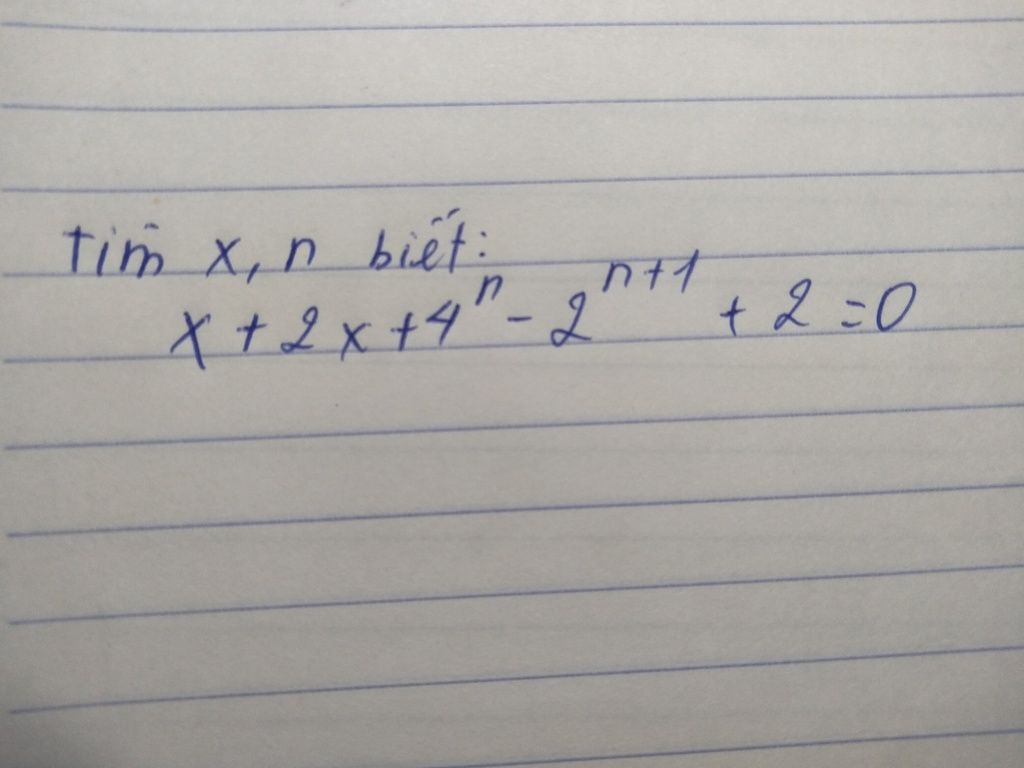 Tìm x, n biết:
x + 2x + 4^n - 2^{n+1} + 2 = 0